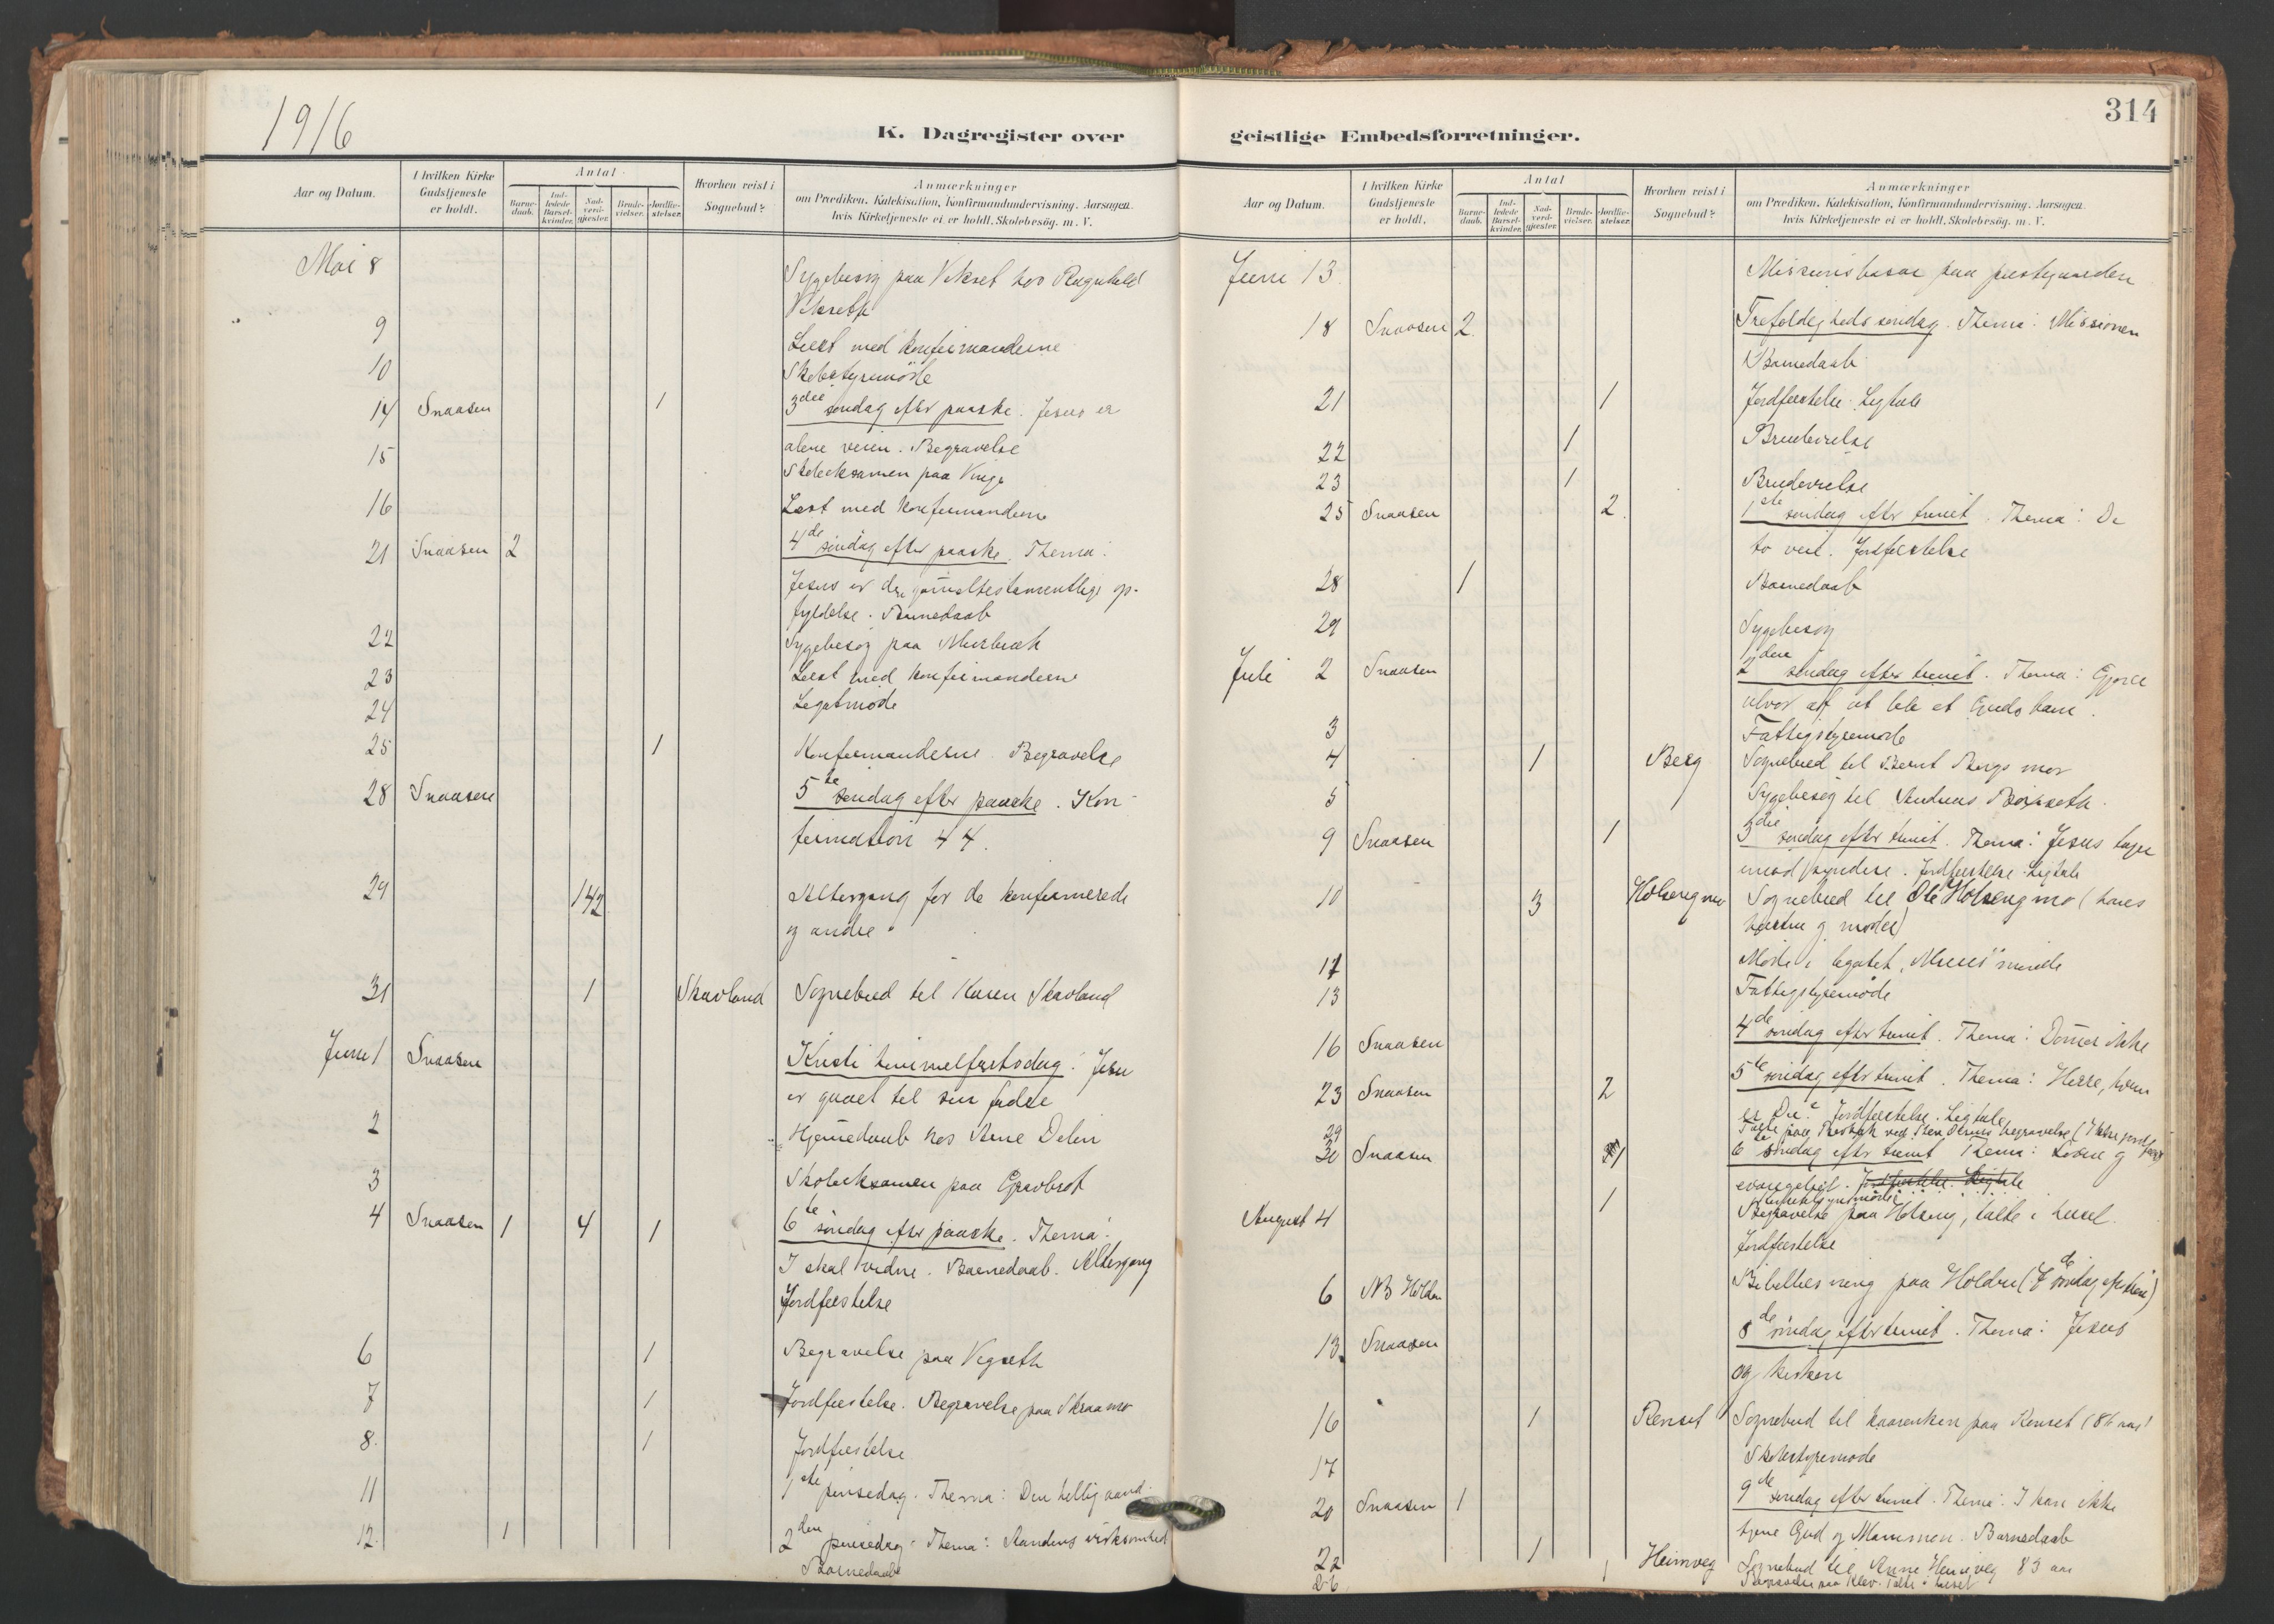 1916
K. Dagregister over
Aar og Datum.
I hvilken Kirke Gudstjeneste er holdt.
Antal
Barne-daab.
Ind-ledede Barsel-kvinder.
Nad-verd-gjæster.
Brude-vielser.
Jordfæ-stelser.
Hvorhen reist i Sognebud?
Anmærkninger
om Prædiken, Katekisation, Konfirmandundervisning, Aarsagen
hvis Kirketjeneste ei er holdt, Skolebesög. m. V.
Mai 8 Sygebesøg paa Vekset hos Ragnhild
Vekseth
9 Læst med konfirmanderne
10 Skolestyremöte
14 Snaasen 1 3die søndag efter paaske. Jesus er
alene veien. Begravelse
15 Skoleeksamen paa Vinje
16 Læst med konfirmanderne
21 Snaasen 2 4de søndag efter paaske. Thema:
Jesus er den gammeltestamentlige op-
fyldelse. Barnedaab
22 Sygebesøg paa
23 Læst med konfirmanderne
24 Legatmöde
25 1 Konfirmanderne. Begravelse
28 Snaasen 5te søndag efter paaske. Kon-
firmation 44.
29 142 Altergang for de konfirmerede
og andre
31 1 Skavland Sognebud til Karen Skavland
Juni 1 Snaasen Kristi himmelfartsdag: Jesu
er gaaet til sin fader
2 Hjemmedaab hos Arne Dalin
3 Skoleeksamen paa Gravbrøt
4 Snaasen 1 4 1 6te søndag efter paaske. Thema:
I skal vidne. Barnedaab. Altergang
Jordfæstelse
6 1 Begravelse paa Vegseth
7 1 Jordfæstelse. Begravelse paa Skraamo
8. 1 Jordfæstelse
11 1ste pinsedag. Thema: Den hellig aand.
12. 1 2den pinsedag. Thema: Aandens virksomhed
Barnedaab
314
geistlige Embedsforretninger.
Aar og Datum.
I hvilken Kirke Gudstjeneste er holdt.
Antal
Barne-daab.
Ind-ledede Barsel-kvinder.
Nad-verd-gjæster.
Brude-vielser.
Jordfæ-stelser.
Hvorhen reist i Sognebud?
Anmærkninger
om Prædiken, Katekisation, Konfirmandundervisning, Aarsagen
hvis Kirketjeneste ei er holdt, Skolebesög. m. V.
Juni 13. Missionsbasar paa prestgaarden
18 Snaasen 2. Trefoldigheds søndag. Thema: Missionen
Barnedaab
21 1 Jordfæstelse. Ligtale
22 1 Brudevielse
23 1 Brudevielse
25 Snaasen 2. 1ste søndag efter trinit. Thema: De
to veie. Jordfæstelse
28 1 Barnedaab
29 Sygebesøg
Juli 2 Snaasen 2den søndag efter trinit. Thema: Gjøre
alvor af at bli et Guds barn.
3 Fattigstyremøde
4 1 Berg Sognebud til Bernt Bergs mor
5 Sygebesøg til Andreas
9 Snaasen 1 3die søndag efter trinit. Thema: Jesus tager
imod syndere. Jordfæstelse. Ligtale
10 3 Holsengmo Sognebud til Ole Holsengmo (hans
hustru og moder)
11 Möte i legatet, minde
13 Fattigstyremøde
16 Snaasen 4de søndag efter trinit. Thema: Dømer ikke
23 Snaasen 2 5te søndag efter trinit. Thema: Herre, hvem
er Du? Jordfæstelse. Ligtale
29 Talte paa ved begravelse (Ikke
30 Snaasen 1 6te søndag efter trinit. Thema: Loven og
evangeliet. Jordfæstelse. Ligtale
August 4 1 Begravelse paa Holseng, talte i huset.
Jordfæstelse
6 NB Holden Bibellæsning paa Holden (7de søndag e. trin)
13. Snaasen 8de søndag efter trinit. Thema: Jesus
og kirken
16 1 Renset Sognebud til kaarenken paa Renset (86 aar)
17 Skolestyremøde
20 Snaasen 1 9de søndag efter trinit. Thema: I kan ikke
tjene Gud og Mammon. Barnedaab
22 1 Heimveg Sognebud til Anne Heimveg 83 aar
26 1 Begravelse paa Klev. Talte i huset